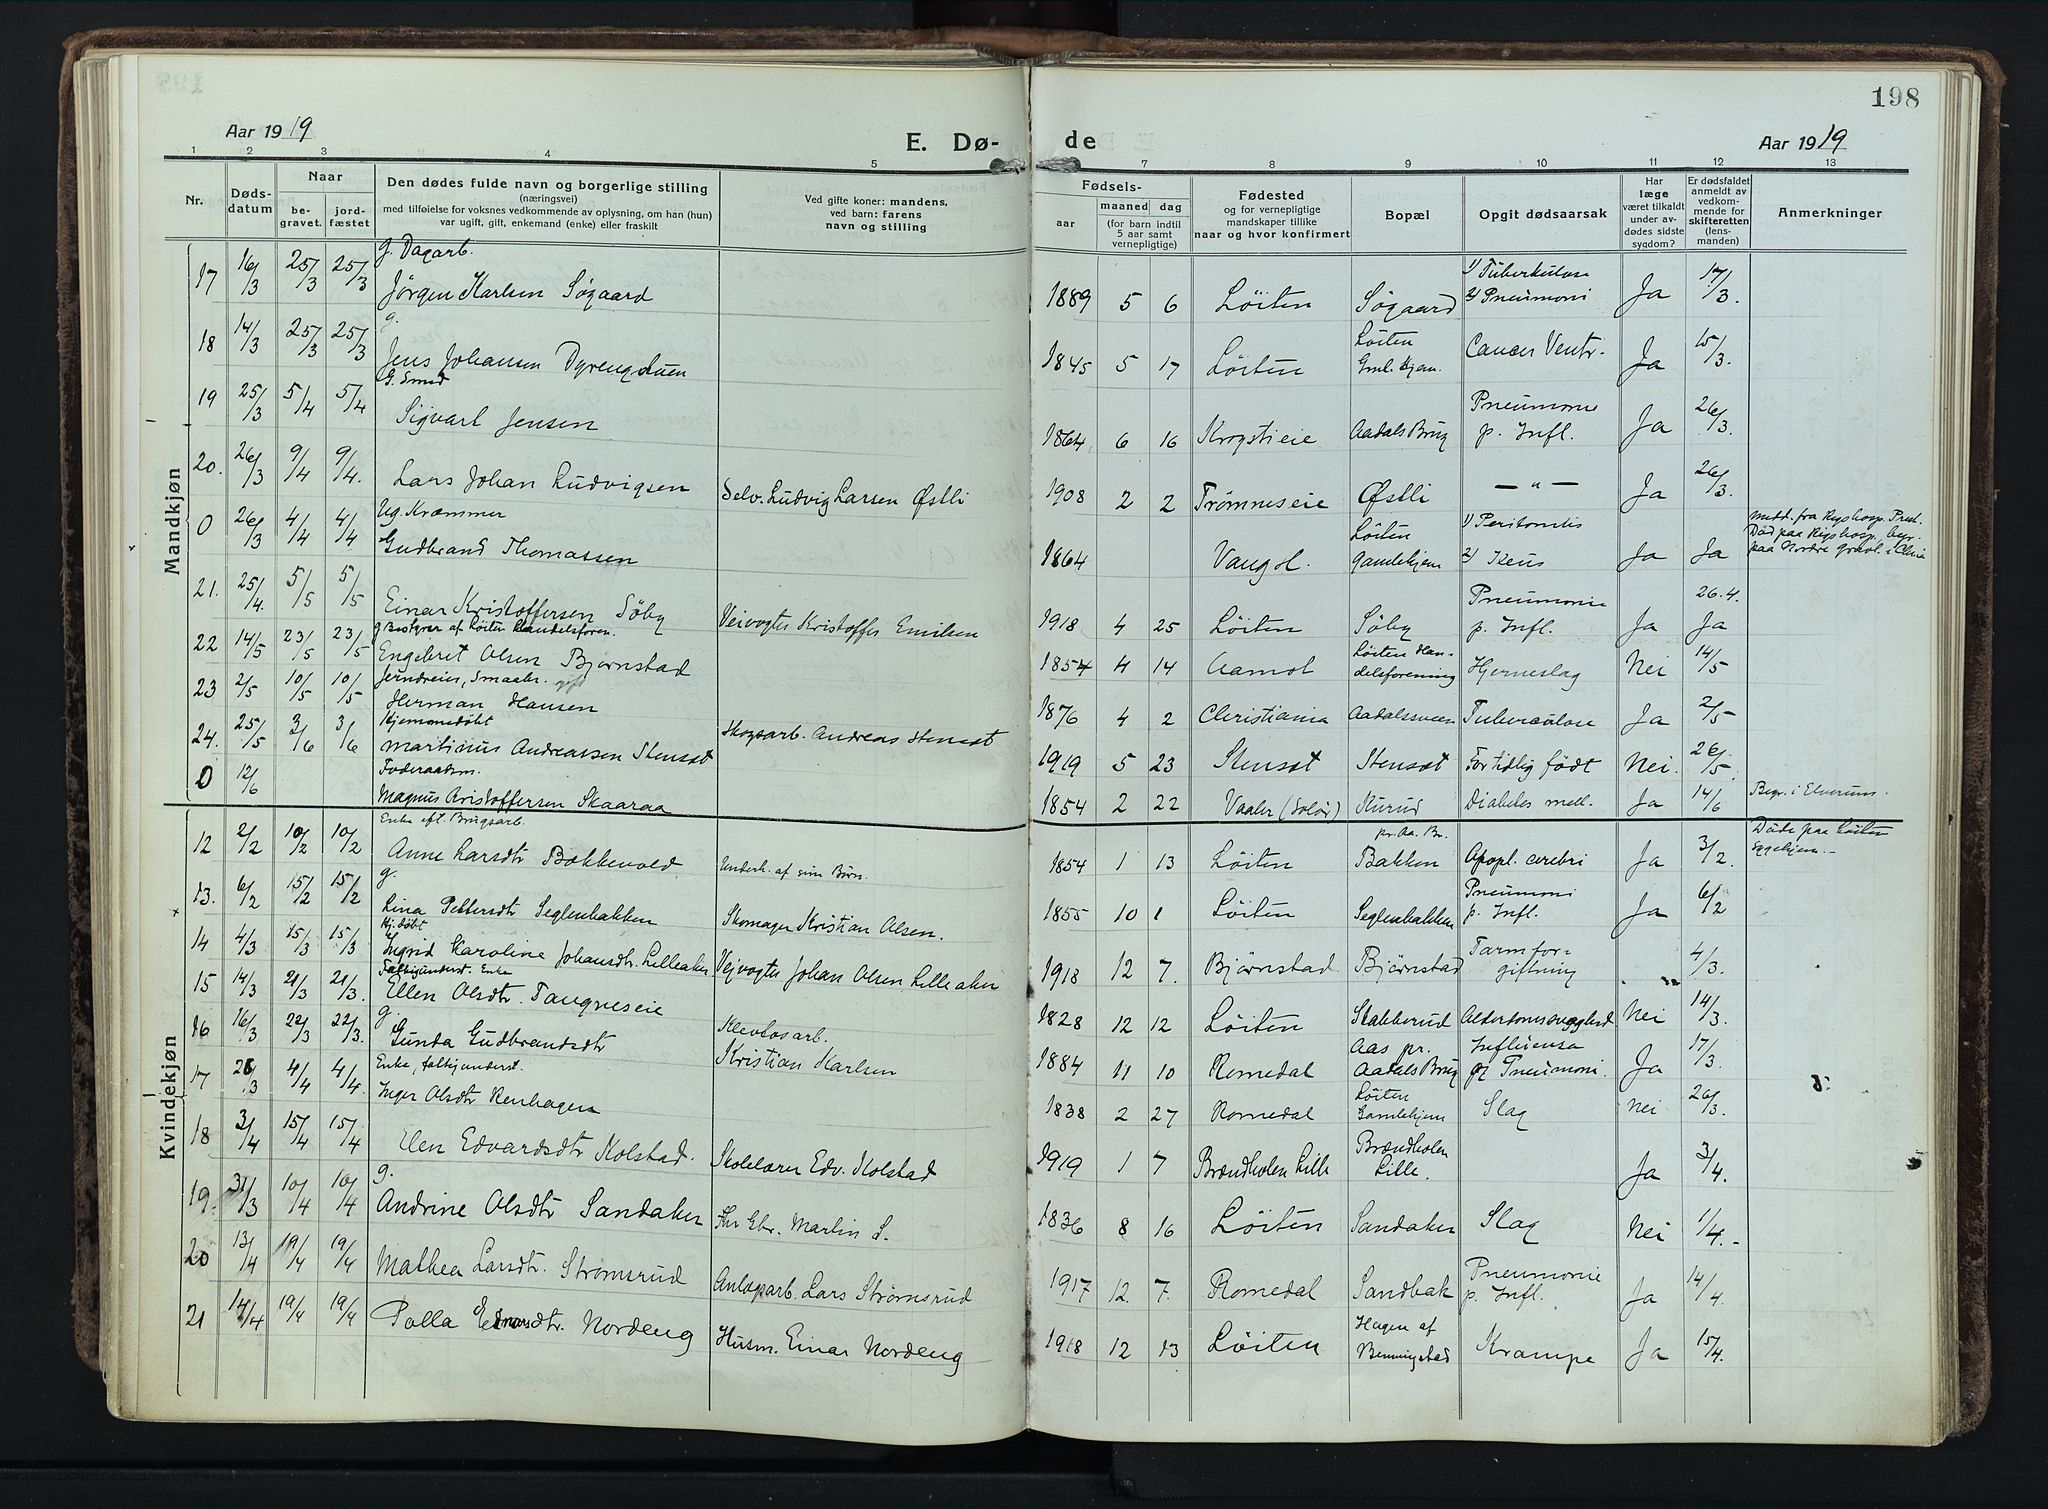 198
Aar 1919
E. Dø-
de
Aar 1919
1 2 3 4 5 7 8 9 10 11 12 13
Nr.
Døds-
datum
Naar
be-
gravet.
jord-
fæstet
Den dødes fulde navn og borgerlige stilling
(næringsvei)
med tilføielse for voksnes vedkommende av oplysning, om han (hun)
var ugift, gift, enkemand (enke) eller fraskilt
Ved gifte koner: mandens,
ved barn: farens
navn og stilling
Fødsels-
aar
maaned dag
(for barn indtil
5 aar samt
vernepligtige)
Fødested
og for vernepligtige
mandskaper tillike
naar og hvor konfirmert
Bopæl
Opgit dødsaarsak
Har
læge
været tilkaldt
under av-
dødes sidste
sygdom?
Er dødsfaldet
anmeldt av
vedkom-
mende for
skifteretten
(lens-
manden)
Anmerkninger
Mandkjøn
g. Dagarb.
17 16/3 25/3 25/3 Jørgen Karlsen Søgaard 1889 5 6 Løiten Søgaard 1) Tuberkulose 2) Pneumoni Ja 17/3.
g.
18 14/3 25/3 25/3 Jens Johansen Dyrengduen 1845 5 17 Løiten Løiten Gml. Hjem. Cancer Ventr. Ja 15/3.
G. Smed
19 25/3 5/4 5/4 Sigvart Jensen 1864 6 16 Krogstieie Aadals Brug Pneumone p. Infl. Ja 26/3.
20. 26/3 9/4 9/4. Lars Johan Ludvigsen Selv. Ludvig Larsen Østli 1908 2 2 Trømneseie Østli —"— Ja 26/3.
Ug. Kræmmer
0 26/3 4/4 4/4 Gudbrand Thomassen 1864 Vang H. Løiten Gamlehjem 1) Peritonitis 2) Ileus Ja Ja Medd. fra Rigshosp. Prest. Død paa Rigshosp. begr. paa Nordre gravl. i Chria
21. 25/4. 5/5 5/5 Einar Kristoffersen Søby Veivogter Kristoffer Emilsen 1918 4 25 Løiten Søby Pneumonie p. Infl. Ja 26.4. Ja
g. Bestyrer af Løiten Handelsforen.
22 14/5 23/5 23/5 Engebret Olsen Bjørnstad 1854 4 14 Aamot Løiten Handelsforening Hjerneslag Nei 14/5
Jerndreier, Smaabr. gift
23 2/5 10/5 10/5 Herman Hansen 1876 4 2 Christiania Aadalssveen Tuberculose Ja 2/5
Hjemmedøbt
24. 25/5 3/6 3/6 Martinus Andreassen Stensæt Skogsarb. Andreas Stensæt 1919 5 23 Stensæt Stensæt For tidlig født Nei. 26/5.
Føderaadsm.
0 12/6 Magnus Kristoffersen Skaaraa 1854 2 22 Vaaler (Solør) Kurud Diabetes mell. Ja 14/6 Begr. i Elverum.
Kvindekjøn
Enke eft. Brugsarb.
12 2/2 10/2 10/2 Anne Larsdtr Bækkevold. Underh. af sine Børn. 1854 1 13 Løiten pr. Aa. Br. Bakken Apopl. cerebri Ja 3/2. Døde paa Løiten Sygehjem.
g.
13. 6/2 15/2 15/2 Lina Pettersdtr Seglenbakken Skomager Kristian Olsen. 1855 10 1 Løiten Seglenbakken Pneumoni p. Infl. Ja 6/2
Hj. døbt
14 4/3 15/3 15/3 Ingrid Karoline Johansdtr. Lilleaker Veivogter Johan Olsen Lilleaker 1918 12 7. Bjørnstad Bjørnstad Tarmforgiftning 4/3.
Fattigunderst. Enke
15 14/3 21/3 21/3. Ellen Olsdtr. Tangneseie 1828 12 12 Løiten Stakkerud Alderdomssvaghed Nei 14/3.
g.
16 16/3 22/3 22/3. Gunda Gudbrandsdtr Klevfosarb. Kristian Karlsen 1884 11 10 Romedal Aas pr. Aadals Brug Influensa og Pneumoni. Ja 17/3.
Enke, fattigunderst.
17 26/3 4/4 4/4. Inger Olsdtr Renhagen 1838 2 27 Romedal Løiten Gamlehjem Slag Nei 26/3.
18 3/4 15/4 15/4 Elen Edvardsdtr Kolstad. Skolelærer Edv. Kolstad 1919 1 7 Brændholen Lille Brændholen Lille. Ja 3/4.
g.
19. 31/3 10/4 10/4 Andrine Olsdtr Sandaker Fhv Gbr. Martin S. 1836 8 16 Løiten Sandaker Slag Nei 1/4.
20 13/4 19/4 19/4 Mathea Larsdtr. Strømsrud Anlægarb. Lars Strømsrud 1917 12. 7. Romedal Sandbak Pneumonie p. Infl. Ja 14/4.
21 14/4 19/4 19/4 Palla Einarsdtr. Nordeng Husm. Einar Nordeng 1918 12 13 Løiten Hagen af Benningstad Krampe Ja 15/4.